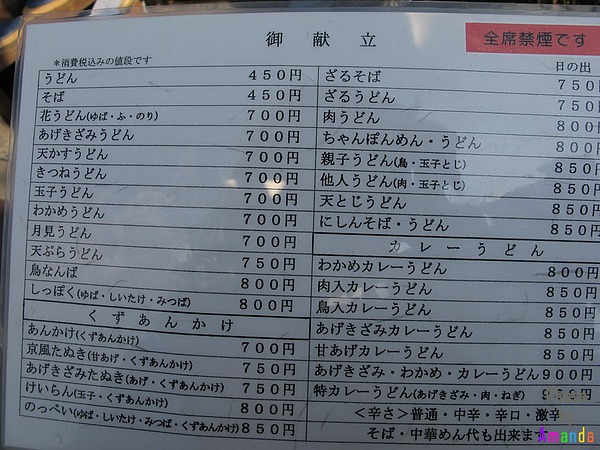 御献立
全席禁煙です
*消費税込みの値段です
日の出
うどん 450円
そば 450円
花うどん(ゆば・ふ・のり) 700円
あげきざみうどん 700円
天かすうどん 700円
きつねうどん 700円
玉子うどん 700円
わかめうどん 700円
月見うどん 700円
天ぷらうどん 750円
鳥なんば 800円
しっぽく(ゆば・しいたけ・みつば) 800円
くずあんかけ
あんかけ(くずあんかけ) 700円
京風たぬき(甘あげ・くずあんかけ) 750円
あげきざみたぬき(あげ・くずあんかけ) 750円
けいらん(玉子・くずあんかけ) 800円
のっぺい(ゆば・しいたけ・みつば・くずあんかけ) 850円
ざるそば 750
ざるうどん 750
肉うどん 800
ちゃんぽんめん・うどん 800
親子うどん(鳥・玉子とじ) 850
他人うどん(肉・玉子とじ) 850
天とじうどん 850
にしんそば・うどん 850
カレーうどん
わかめカレーうどん 800円
肉入カレーうどん 850円
鳥入カレーうどん 850円
あげきざみカレーうどん 850円
甘あげカレーうどん 850円
あげきざみ・わかめ・カレーうどん 900円
特カレーうどん(あげきざみ・肉・ねぎ) 950円
<辛さ>普通・中辛・辛口・激辛
そば・中華めん代も出来ます
Amanda